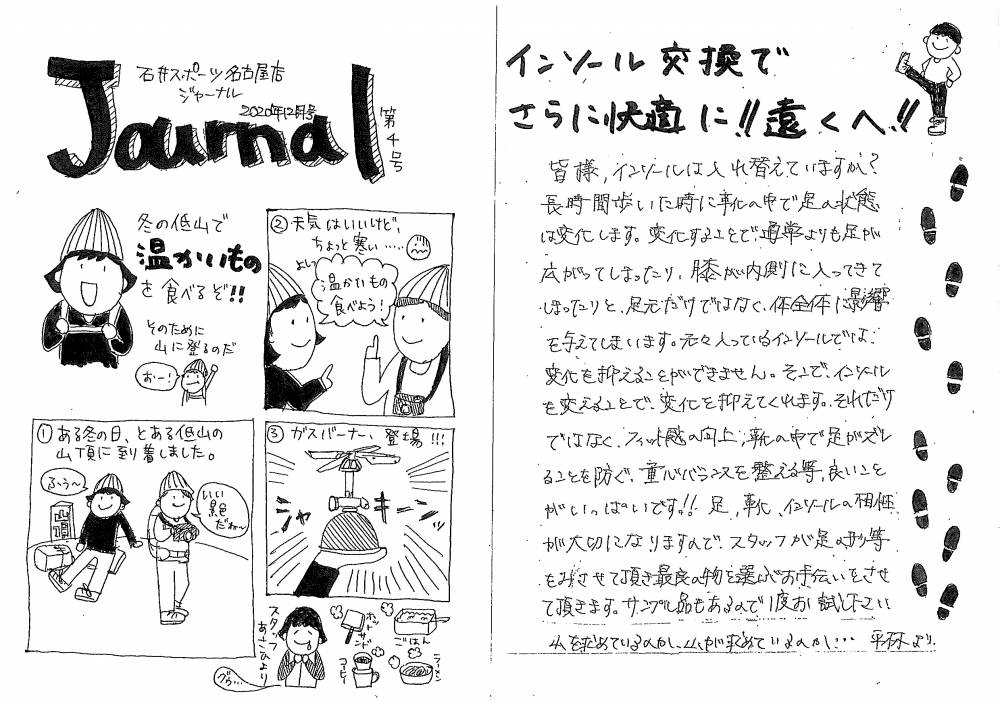 石井スポーツ名古屋店
ジャーナル
2020年12月号
Journal
第4号
冬の低山で
温かいもの
を食べるぞ!!
そのために
山に登るのだ
おー!
① ある冬の日、とある低山の
山頂に到着しました。
ふぅ〜
山頂
いい
景色
だね〜
② 天気はいいけど、
ちょっと寒い……
よしっ
温かいもの
食べよう!
③ ガスバーナー、登場!!!
シャキーン
スタッフ
あさひより
グゥ…
ホットサンド
ごはん
コーヒー
ラーメン
インソール交換で
さらに快適に!!遠くへ!!
皆様、インソールは入れ替えていますか?
長時間歩いた時に靴の中で足の状態
は変化します。変化することで、通常よりも足が
広がってしまったり、膝が内側に入ってきて
しまったりと、足元だけではなく、体全体に影響
を与えてしまいます。元々入っているインソールでは、
変化を抑えることができません。そこで、インソール
を変えることで、変化を抑えてくれます。それだけ
ではなく、フィット感の向上、靴の中で足がズレ
ることを防ぐ、重心バランスを整える等、良いこと
がいっぱいです!!足、靴、インソールの相性
が大切になりますので、スタッフが足の形等
をみさせて頂き最良の物を選ぶお手伝いをさせ
て頂きます。サンプル品もあるので1度お試し下さい
山を求めているのか、山が求めているのか… 平林より